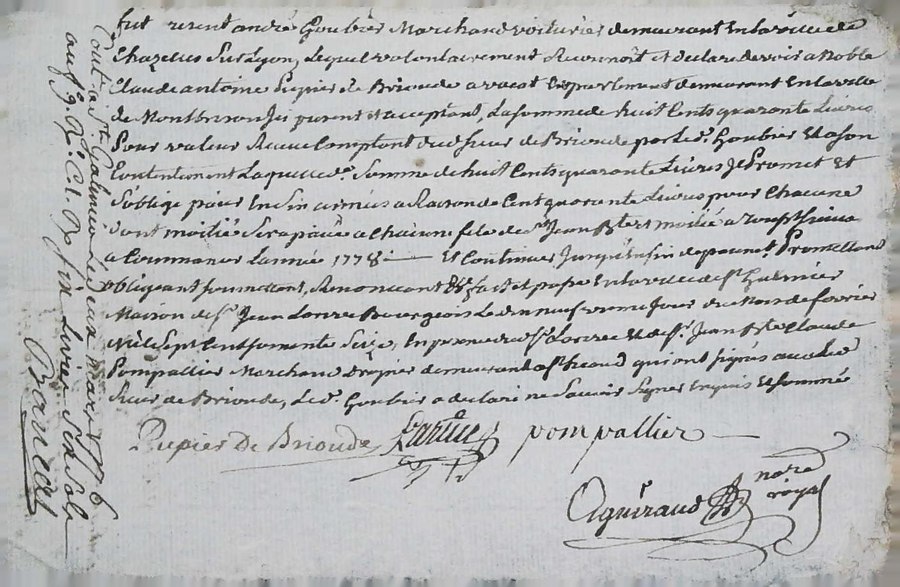 fut present andré Goubier Marchand voiturier demeurant en la ville de
Chazelles Sur Lyon, Lequel volontairement Reconnoit et declare devoir a Noble
Claude antoine Pupier de Brioude avocat En parlement demeurant En la ville
de Montbrison Icy present et acceptant, La somme de huit Cents quarante Livres
Pour valeur Receue Comptant dud. Sieur de Brioude par led. Goubier Et a son
Contentement Laquelle de. Somme de huit Cents quarante Livres Il Promet Et
S'oblige payer En Six années a Raison de Cent quarante Livres pour Chacune
dont moitié Sera payée a Chacune fete de St. Jean Bte et moitié a
a Commancer L'année 1778 Et Continuer Jusqu'a Enfin de payment Promettant
obligeant soumettant, Renoncant &a fait et passé En la ville de St. Galmier
Maison de Sr. Jean Bourgeois Le neufvieme Jour du Mois de fevrier
Mil Sept Cent Soixante Seize, En presence de Sr. et de Sr. Jean Bte Claude
Pompallier Marchand Drapier demeurant a St. qui ont signés avec led.
Sieur de Brioude, Led. Goubier a declaré ne Scavoir Signer Enquis Et sommé
Pupier De Brioude pompallier
Aguiraud nore royal
Cont. a St. Galmier Le
Livres